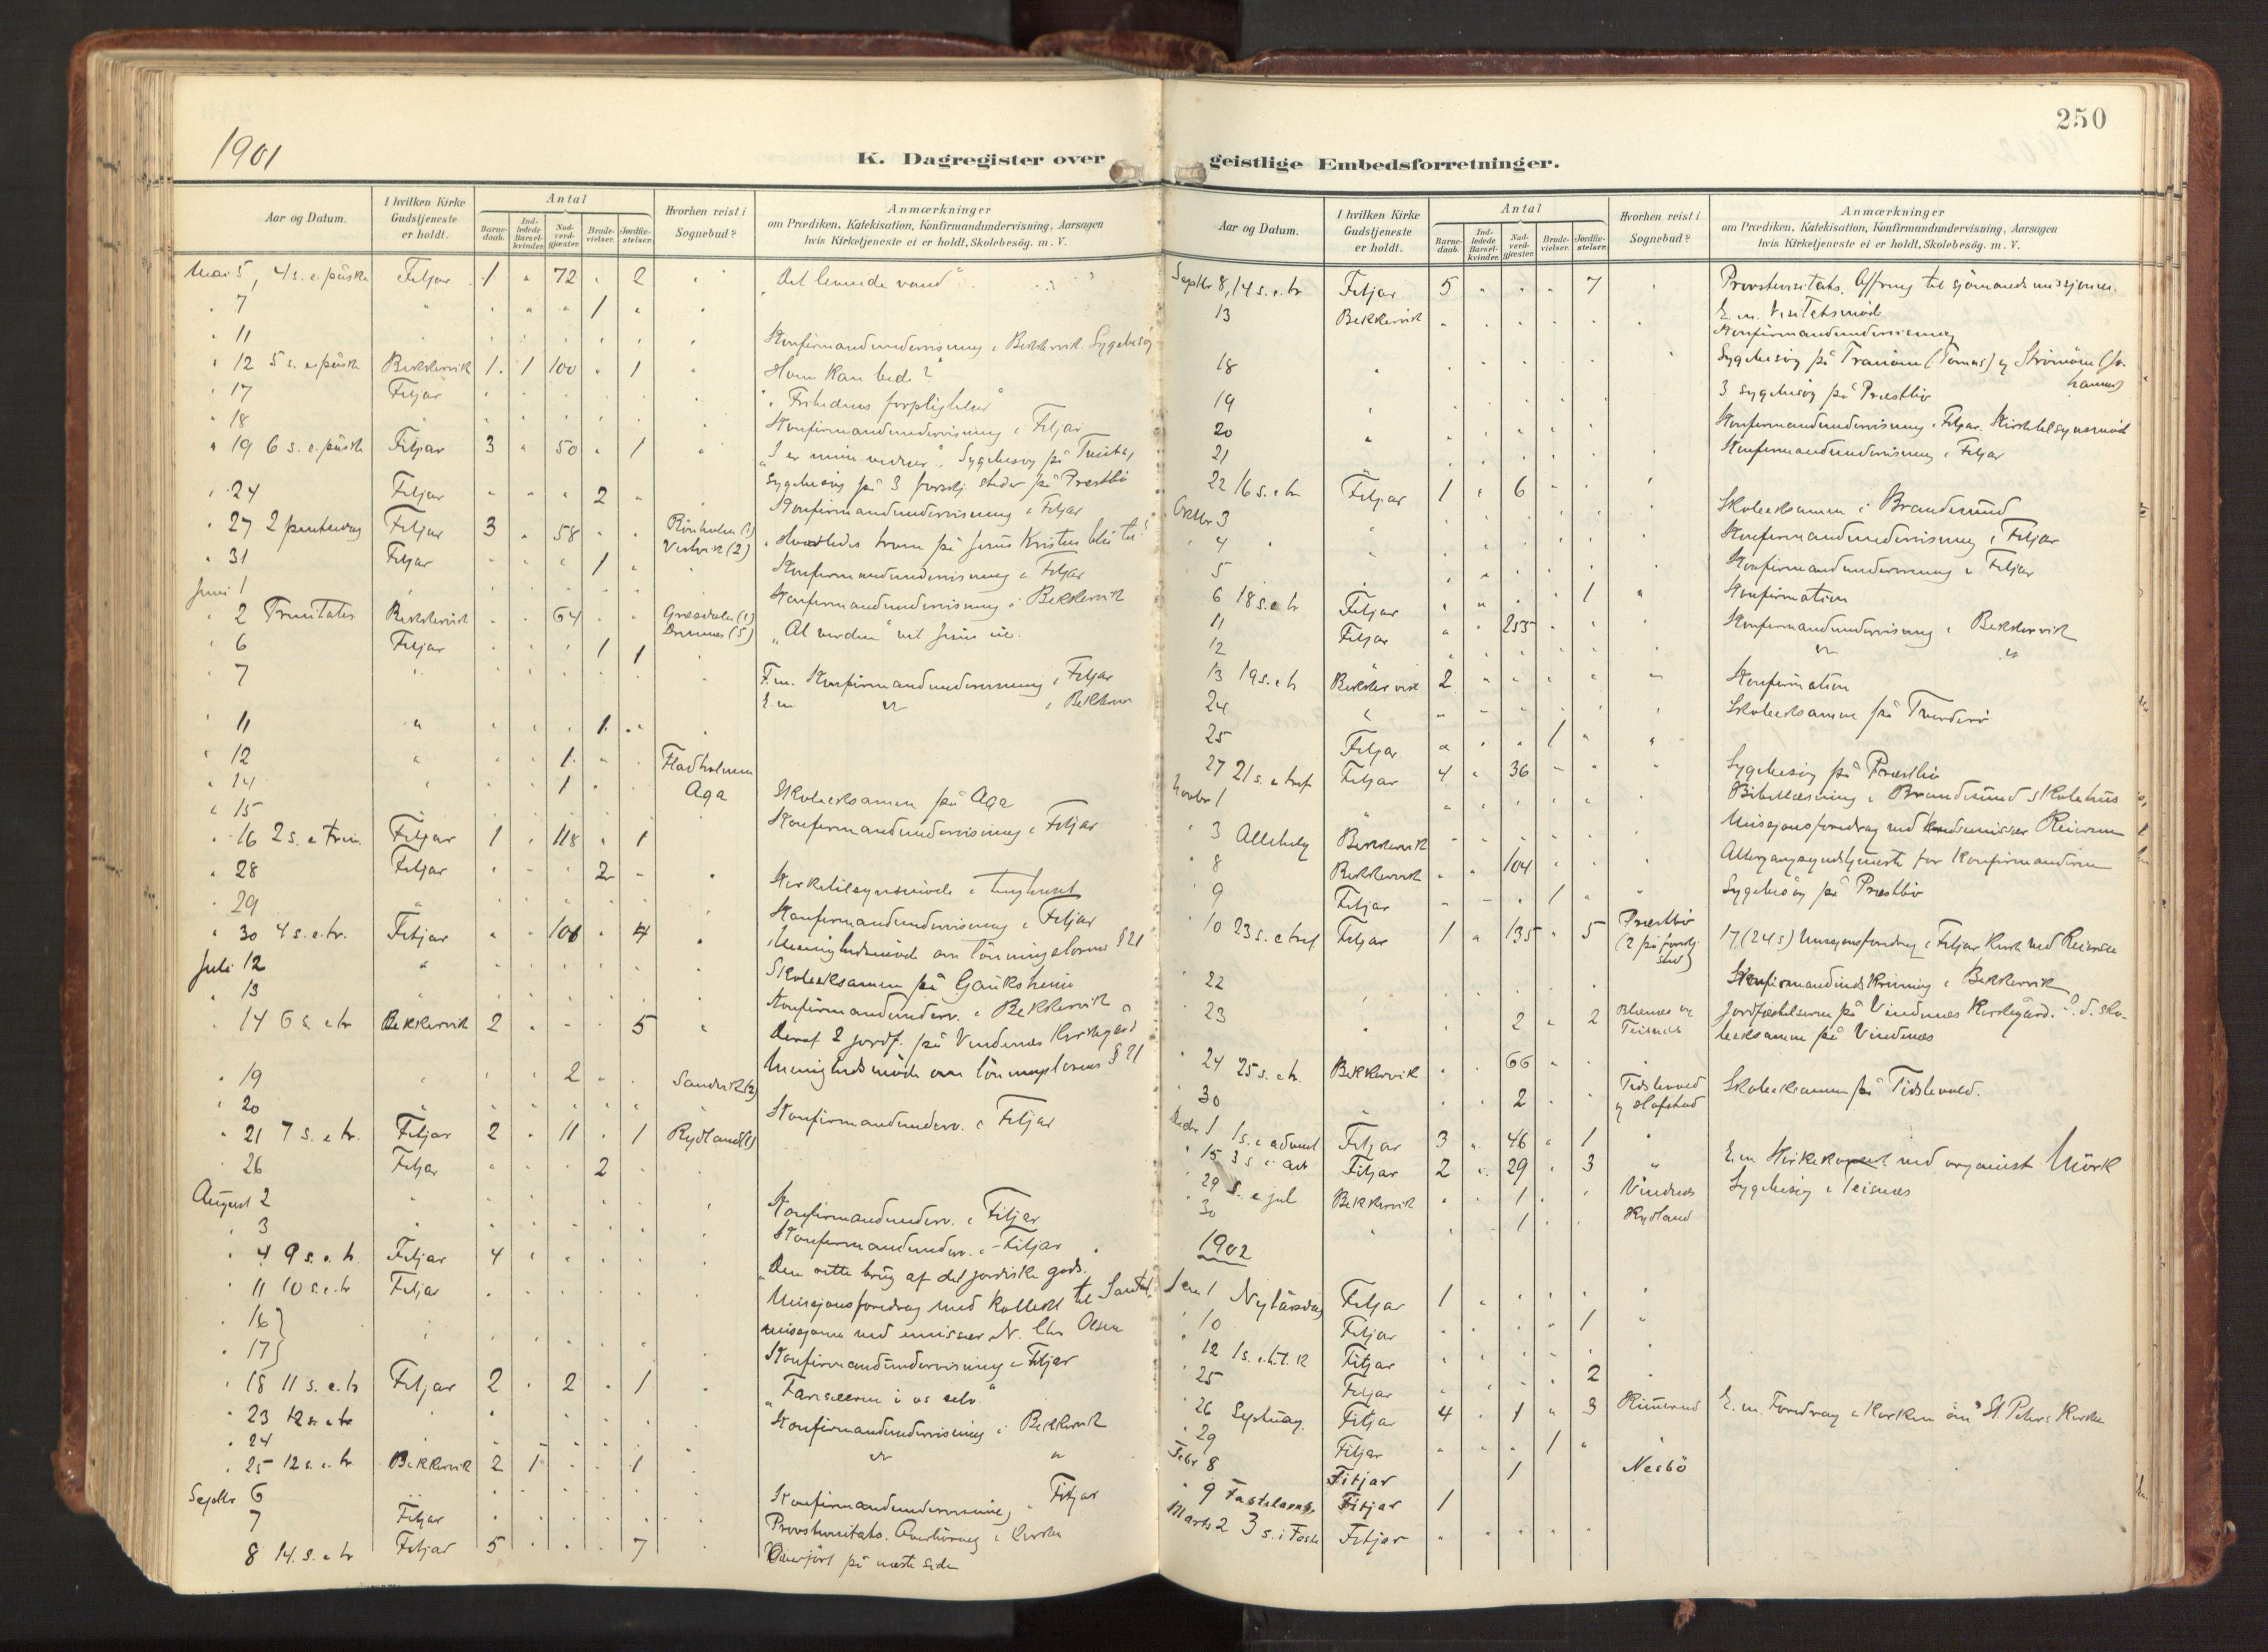 250
1901
K. Dagregister over geistlige Embedsforretninger.
Aar og Datum. I hvilken Kirke Gudstjeneste er holdt. Antal Barnedaab. Indledede Barselkvinder. Nadverdgjæster. Brudevielser. Jordfæstelser. Hvorhen reist i Sognebud? Anmærkninger om Prædiken, Katekisation, Konfirmandundervisning, Aarsagen hvis Kirketjeneste ei er holdt, Skolebesög. m. V.
Mai 5, 4 s. e. påske Fitjar 1 " 72 " 2 " "Det levende vand"
" 7 " " " " 1 " "
" 11 Konfirmandundervisning i Bekkervik. Sygebesög
" 12 5 s. e. påske Bekkervik 1 1 100 " 1 Hvem kan bede?
" 17 Fitjar "Frihedens forpligtelser"
" 18 " Konfirmandundervisning i Fitjar
" 19 6 s. e. påske Fitjar 3 " 50 " 1 "I er mine vidner". Sygebesøg på
Sygebesög på 3 forskj steder på Præstbö
" 24 Fitjar " " " 2 " Konfirmandundervisning i Fitjar
" 27 2 pintsedag Fitjar 3 " 58 " " Rönholm (1) Vestvik (2) "Hvorledes troen på Jesus Kristus blir til"
" 31 Fitjar " " " 1 " Konfirmandundervisning i Fitjar
Juni 1 Konfirmandundervisning i Bekkervik
" 2 Trinitatis Bekkervik " " 64 " " (1) (5) "At verden" vil Jesus
" 6 Fitjar " " " 1 1
" 7 " F.m. Konfirmandundervisning i Fitjar
E.m. " i Bekkervik
" 11 " " " " 1 "
" 12 " " " 1 " " Fladholmen
" 14 " " " 1 " " Aga Skoleeksamen på Aga
" 15 Konfirmandundervisning i Fitjar
" 16 2 s. e. trin. Fitjar 1 " 118 " 1
" 28 Fitjar " " " 2 " " Kirketilsynsmöde i tinghuset
" 29 " Konfirmandundervisning i Fitjar
" 30 4 s. e. tr. Fitjar " " 106 " 4 " Menighedsmöde om lönningslovens § 21
Juli 12 " Skoleeksamen på Gåuksheim
" 13 " Konfirmandunderv. i Bekkervik
" 14 6 s. e. tr Bekkervik 2 " " " 5 " Deraf 2 jordf. på Vindenes Kirkegård
Menighedsmöde om lönningslovens § 21
" 19 " " " 2 " " Sandvik (2)
" 20 Konfirmandunderv. i Fitjar
" 21 7 s. e. tr. Fitjar 2 " 11 " 1 Rydland (1)
" 26 Fitjar " " " 2
August 2 " Konfirmandunderv. i Fitjar
" 3 " Konfirmandunderv. i Fitjar
" 4 9 s. e. tr. Fitjar 4 "Den rette brug af det jordiske gods.
" 11 10 s. e. tr Fitjar Missjonsforedrag med Kollekt til Santal-
" 16} missjonen ved emissær N. Chr Olsen
" 17} Konfirmandundervisning i Fitjar
" 18 11 s. e. tr Fitjar 2 " 2 " 1 " "Farisæeren i os selv"
" 23 12 s. e. tr Konfirmandundervisning i Bekkervik
" 24 " "
" 25 12 s. e. tr Bekkervik 2 1 " " 1
Septbr 6 Konfirmandundervisning i Fitjar
7 Fitjar Provstevisitats. Overhöring i Kirken
8 14. s. e. tr Fitjar 5 " " " 7 Overfört på næste side
Septbr 8, 14 s. e. tr Fitjar 5 " " " 7 " Provstevisitats. Offring til sjömandsmissjonen.
13 Bekkervik E. m. Visitatsmöde
Konfirmandundervisning
18 " Sygebesög på Tranöen (Tomas) og Strömöen (Johannes)
19 " 3 sygebesög på Præstbö
20 " Konfirmandundervisning i Fitjar. Kirketilsynsmöde
21 Konfirmandundervisning i Fitjar
22 16 s. e. tr Fitjar 1 " 6 " "
Oktbr 3 " Skoleeksamen i Brandesund
" 4 " Konfirmandundervisning i Fitjar
" 5 Konfirmandundervisning i Fitjar
6 18 s. e. tr Fitjar " " " " 1 " Konfirmation
11 Fitjar " " 255 Konfirmandundervisning i Bekkervik
12 " "
13 19 s. e. tr Bekkervik 2 " " " " Konfirmation
24 " Skoleeksamen på
25 Fitjar " " " 1 " "
27 21 s. e. tref Fitjar 4 " 36 " " " Sygebesög på Præstbö
Novbr 1 Bibellæsning i Brandesund skolehus
" 3 Allehelg Bekkervik Missjonsforedrag ved Reiersen
" 8 Bekkervik " " 104 " " Altergangsgudstjeneste for Konfirmanderne
" 9 Fitjar " " " 1 " " Sygebesög på Præstbö
" 10 23 s. e tref Fitjar 1 " 135 " 5 Præstbö (2 på forskj. sted) 17 (24 s) Missjonsforedrag i Fitjar Kirke ved Reiersen
" 22 Konfirmandindskrivning i Bekkervik
" 23 " " 2 " 2 og Teisnes Jordfæstelserne på Vindenes Kirkegård. S. d. sko-
leeksamen på Vindenes
" 24 25 s. e. tr. Bekkervik " " 66 " "
" 30 " " 2 " " Tislevold og Hofstad Skoleeksamen på Tislevold.
Decbr 1 1 s. i advent Fitjar 3 " 46 " 1 "
" 15 3 s i adv Fitjar 2 " 29 " 3 " E.m Kirkekonsert ved organist Mörk
" 29 s. e jul Bekkervik " " 1 " " Vindenes Sygebesög i Teisnes
" 30 " " 1 " " Rydland
1902
Jan 1 Nytårsdag Fitjar 1 " " " " "
" 10 Fitjar " " " " 1 "
" 12 1 s. e. h. t. k Fitjar
" 25 Fitjar " " " " 2 "
" 26 Septuag. Fitjar 4 " 1 " 3 Rimsvad E. m. Foredrag i Kirken om "St Peters Kirken
" 29 Fitjar " " " 1 " "
Febr 8 Fitjar 1 Nesbö
" 9 Fastelavns. Fitjar 1
Marts 2 3 s. i Faste Fitjar